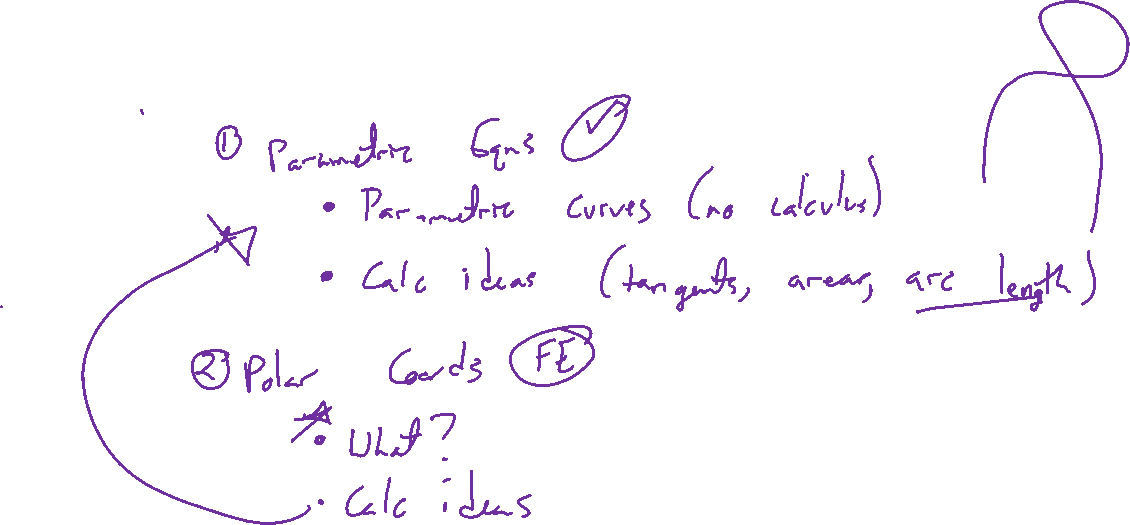 ① Parametric Eqns ✓
• Parametric curves (no calculus)
• Calc ideas (tangents, areas, arc length)
② Polar Coords FE
• What?
• Calc ideas